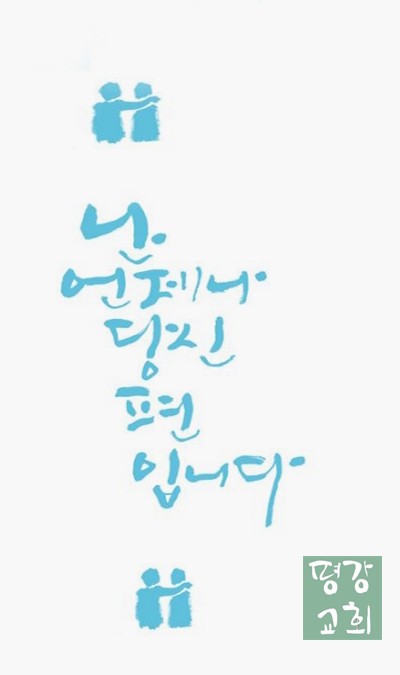 난
언제나
당신
편
입니다
평강
교회